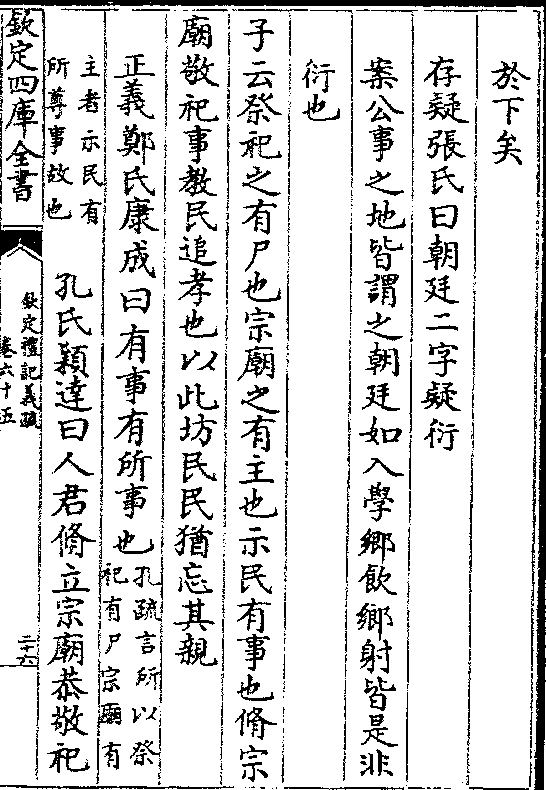 於下矣
存疑張氏曰朝廷二字疑衍
案公事之地皆謂之朝廷如入學鄉飲鄉射皆是非
衍也
子云祭祀之有尸也宗廟之有主也示民有事也脩宗
廟敬祀事教民追孝也以此坊民民猶忘其親
正義鄭氏康成曰有事有所事也
孔疏言所以祭
祀有尸宗廟有
主者示民有
所尊事故也
孔氏穎達曰人君脩立宗廟恭敬祀
欽定四庫全書
欽定禮記義疏
卷六十五
二十六